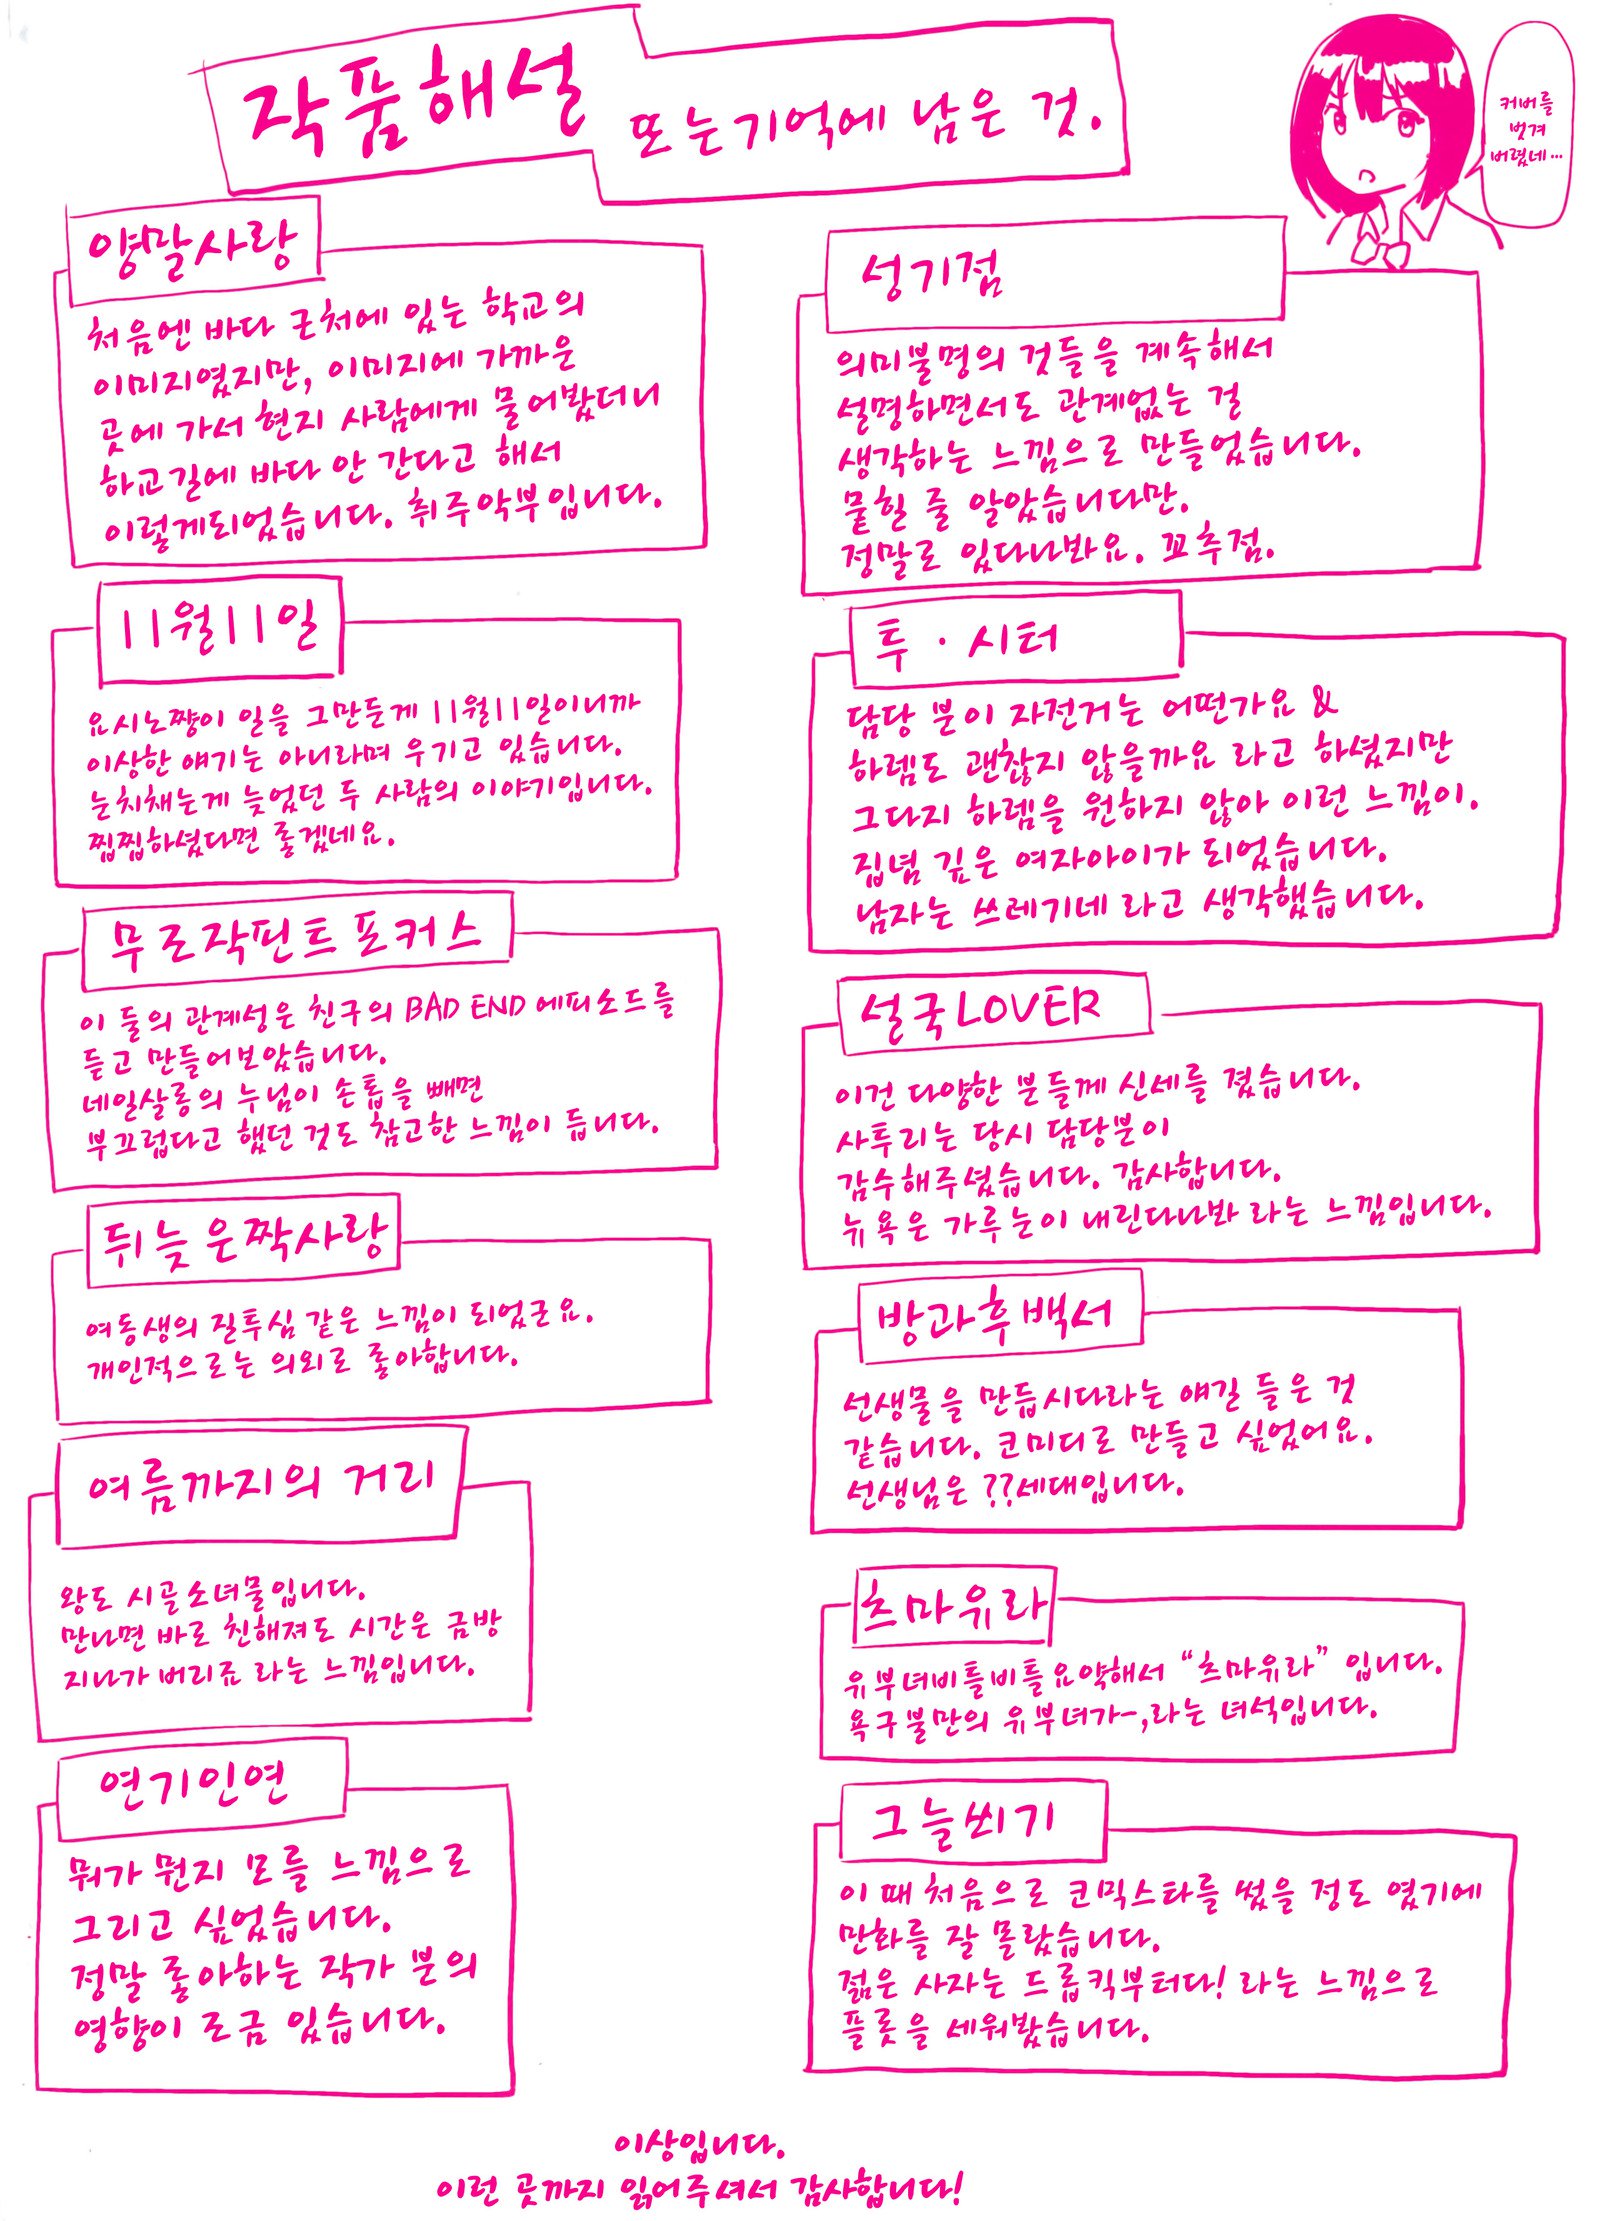 작품해설
또는기억에 남은 것.
커버를
벗겨
버렸네...
양말사랑
처음엔 바다 근처에 있는 학교의
이미지였지만, 이미지에 가까운
곳에 가서 현지 사람에게 물어봤더니
하교길에 바다 안 간다고 해서
이렇게되었습니다. 취주악부입니다.
11월11일
요시노쨩이 일을 그만둔게 11월11일이니까
이상한 얘기는 아니라며 우기고 있습니다.
눈치채는게 늦었던 두 사람의 이야기입니다.
찝찝하셨다면 좋겠네요.
무로작핀트포커스
이 둘의 관계성은 친구의 BAD END 에피소드를
듣고 만들어보았습니다.
네일살롱의 누님이 손톱을 빼면
부끄럽다고 했던 것도 참고한 느낌이 듭니다.
뒤늦은짝사랑
여동생의 질투심 같은 느낌이 되었군요.
개인적으로는 의외로 좋아합니다.
여름까지의 거리
왕도 시골소녀물입니다.
만나면 바로 친해져도 시간은 금방
지나가 버리죠 라는 느낌입니다.
연기인연
뭐가 뭔지 모를 느낌으로
그리고 싶었습니다.
정말 좋아하는 작가 분의
영향이 조금 있습니다.
성기점
의미불명의 것들을 계속해서
설명하면서도 관계없는 걸
생각하는 느낌으로 만들었습니다.
묻힐 줄 알았습니다만.
정말로 있다나봐요. 꼬추점.
투·시터
담당 분이 자전거는 어떤가요 &
하렘도 괜찮지 않을까요 라고 하셨지만
그다지 하렘을 원하지 않아 이런 느낌이.
집념 깊은 여자아이가 되었습니다.
남자는 쓰레기네 라고 생각했습니다.
설국LOVER
이건 다양한 분들께 신세를 졌습니다.
사투리는 당시 담당분이
감수해주셨습니다. 감사합니다.
뉴욕은 가루눈이 내린다나봐 라는 느낌입니다.
방과후백서
선생물을 만듭시다라는 얘길 들은 것
같습니다. 코미디로 만들고 싶었어요.
선생님은 ??세대입니다.
츠마유라
유부녀비틀비틀요약해서 “츠마유라” 입니다.
욕구불만의 유부녀가-,라는 녀석입니다.
그늘씌기
이 때 처음으로 코믹스타를 썼을 정도 였기에
만화를 잘 몰랐습니다.
젊은 사자는 드롭킥부터다! 라는 느낌으로
플롯을 세워봤습니다.
이상입니다.
이런 곳까지 읽어주셔서 감사합니다!